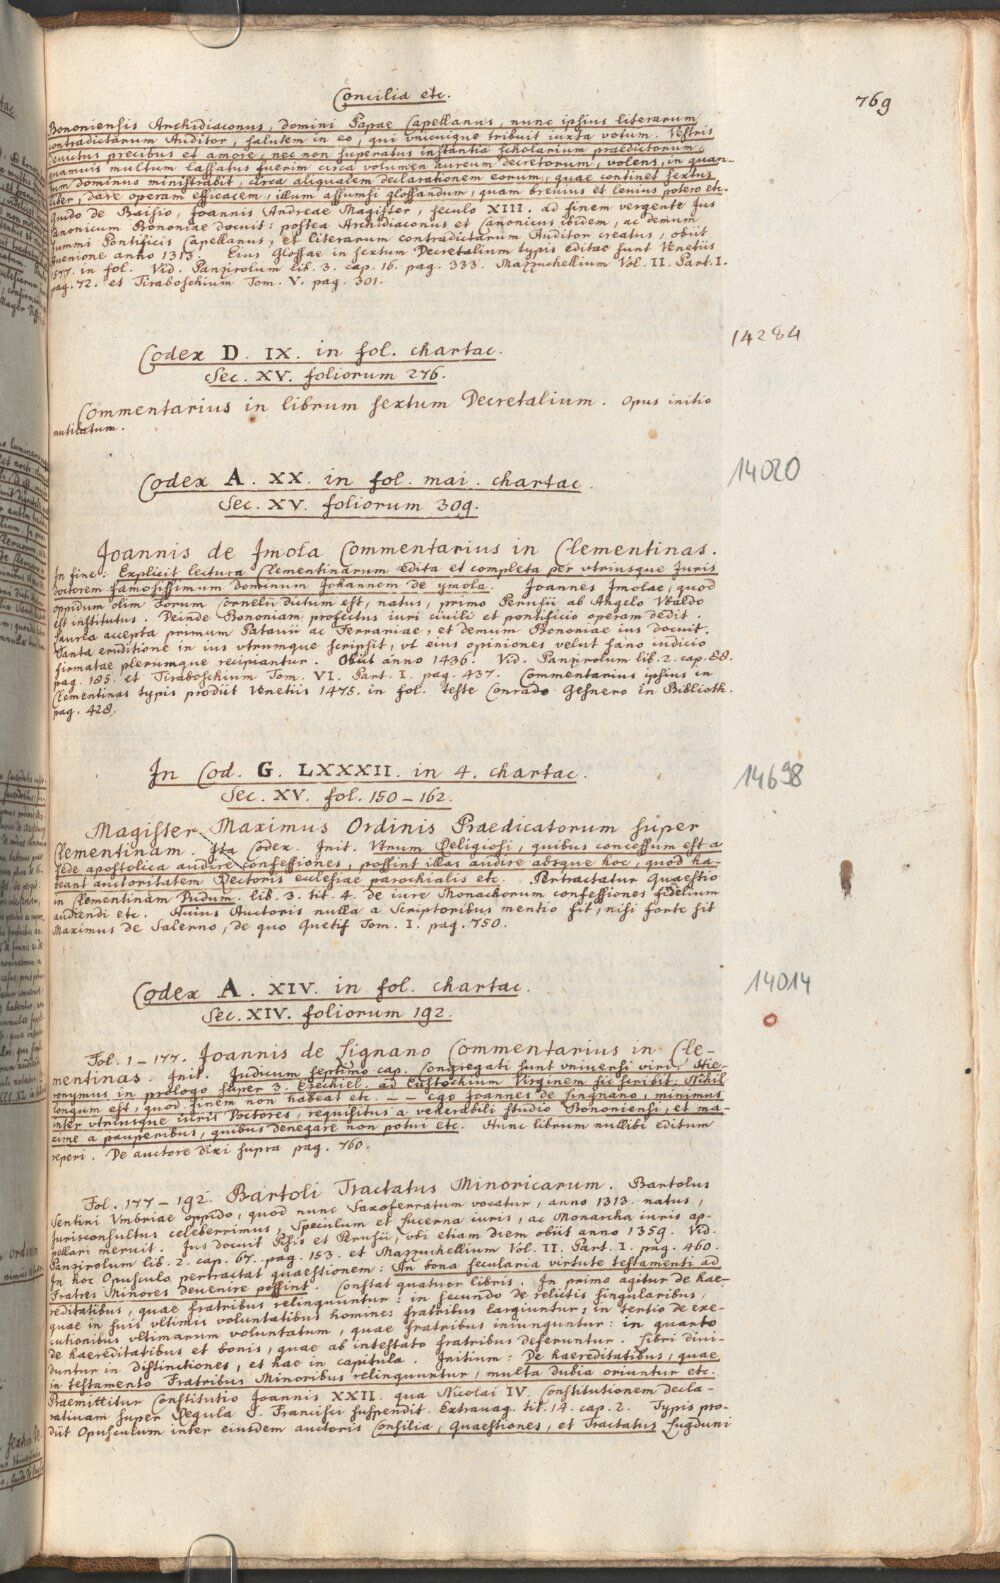 Concilia etc.
769
Bononiensis Archidiaconus, domini Papae Capellanus, nunc ipsius literarum
contradictarum Auditor, salutem in eo, qui vnicuique tribuit iuxta votum. Vestris
deuictus precibus et amore, nec non superatus instantia scholarium praedictorum,
quamuis multum lassatus fuerim circa volumen aureum decretorum, volens, in quan-
tum dominus ministrabit, circa aliqualem declarationem eorum, quae continet sextus
liber, dare operam efficacem, illum assumsi glossandum, quam breuius et leuius potero etc.
Guido de Baisio, Joannis Andreae Magister, seculo XIII. ad finem vergente Jus
Canonicum Bononiae docuit: postea Archidiaconus et Canonicus ibidem, ac demum
summi Pontificis Capellanus, et literarum contradictarum Auditor creatus, obiit
Auenione anno 1313. Eius Glossae in sextum Decretalium typis editae sunt Venetiis
1577. in fol. Vid. Panzirolum lib. 3. cap. 16. pag. 333. Mazzuchellium Vol. II. Part. I.
pag. 72. et Tiraboschium Tom. V. pag. 301.
14284
Codex D. IX. in fol. chartac.
Sec. XV. foliorum 276.
Commentarius in librum sextum Decretalium. Opus initio
mutilatum.
14020
Codex A. XX. in fol. mai. chartac.
Sec. XV. foliorum 309.
Joannis de Imola Commentarius in Clementinas.
In fine: Explicit lectura Clementinarum edita et completa per vtriusque Juris
doctorem famosissimum dominum Johannem de ymola. Joannes Imolae, quod
oppidum olim Forum Cornelii dictum est, natus, primo Perusii ab Angelo Vbaldo
est institutus. Deinde Bononiam profectus iuri ciuili et pontificio operam dedit.
Laurea accepta primum Patauii ac Ferrariae, et demum Bononiae ius docuit.
Tanta eruditione in ius vtrumque scripsit, vt eius opiniones velut sano iudicio
firmatae plerumque recipiantur. Obiit anno 1436. Vid. Panzirolum lib. 2. cap. 88.
pag. 185. et Tiraboschium Tom. VI. Part. I. pag. 437. Commentarius ipsius in
Clementinas typis prodiit Venetiis 1475. in fol. teste Conrado Gesnero in Biblioth.
pag. 428.
14698
In Cod. G. LXXXII. in 4. chartac.
Sec. XV. fol. 150–162.
Magister Maximus Ordinis Praedicatorum super
Clementinam. Ita Codex. Init. Vtrum Religiosi, quibus concessum est a
sede apostolica audire confessiones, possint illas audire absque hoc, quod ha-
beant auctoritatem Rectoris ecclesiae parochialis etc. Pertractatur Quaestio
in Clementinam Dudum. lib. 3. tit. 4. de iure Monachorum confessiones fidelium
audiendi etc. Huius Auctoris nulla a Scriptoribus mentio fit, nisi forte sit
Maximus de Salerno, de quo Quetif Tom. I. pag. 750.
14014
Codex A. XIV. in fol. chartac.
Sec. XIV. foliorum 192.
Fol. 1–177. Joannis de Lignano Commentarius in Cle-
mentinas. Init. Iudicum septimo cap. Congregati sunt vniuersi viri, Hie-
ronymus in prologo super 3. Ezechiel. ad Eustochium Virginem sic scribit: Nihil
longum est, quod finem non habeat etc. – – Ego Joannes de Lingnano, minimus
inter vtriusque iuris Doctores, requisitus a venerabili studio Bononiensi, et ma-
xime a pauperibus, quibus denegare non potui etc. Hunc librum nullibi editum
reperi. De auctore dixi supra pag. 760.
Fol. 177–192. Bartoli Tractatus Minoricarum. Bartolus
Sentini Vmbriae oppido, quod nunc Saxoferratum vocatur, anno 1313. natus,
Jurisconsultus celeberrimus, Speculum et Lucerna iuris, ac Monarcha iuris ap-
pellari meruit. Jus docuit Pisis et Perusii, vbi etiam diem obiit anno 1359. Vid.
Panzirolum lib. 2. cap. 67. pag. 153. et Mazzuchellium Vol. II. Part. I. pag. 460.
In hoc Opusculo pertractat quaestionem: An bona secularia virtute testamenti ad
Fratres Minores deuenire possint. Constat quatuor libris. In primo agitur de hae-
reditatibus, quae fratribus relinquuntur: in secundo de relictis singularibus,
quae in suis vltimis voluntatibus homines fratribus largiuntur: in tertio de exe-
cutionibus vltimarum voluntatum, quae fratribus iniunguntur: in quarto
de haereditatibus et bonis, quae ab intestato fratribus deferuntur. Libri diui-
duntur in distinctiones, et hae in capitula. Initium: De haereditatibus, quae
in testamento Fratribus Minoribus relinquuntur, multa dubia oriuntur etc.
Praemittitur Constitutio Joannis XXII. qua Nicolai IV. Constitutionem decla-
ratiuam super Regula S. Francisci suspendit. Extrauag. tit. 14. cap. 2. Typis pro-
diit Opusculum inter eiusdem auctoris Consilia, Quaestiones, et Tractatus Lugduni